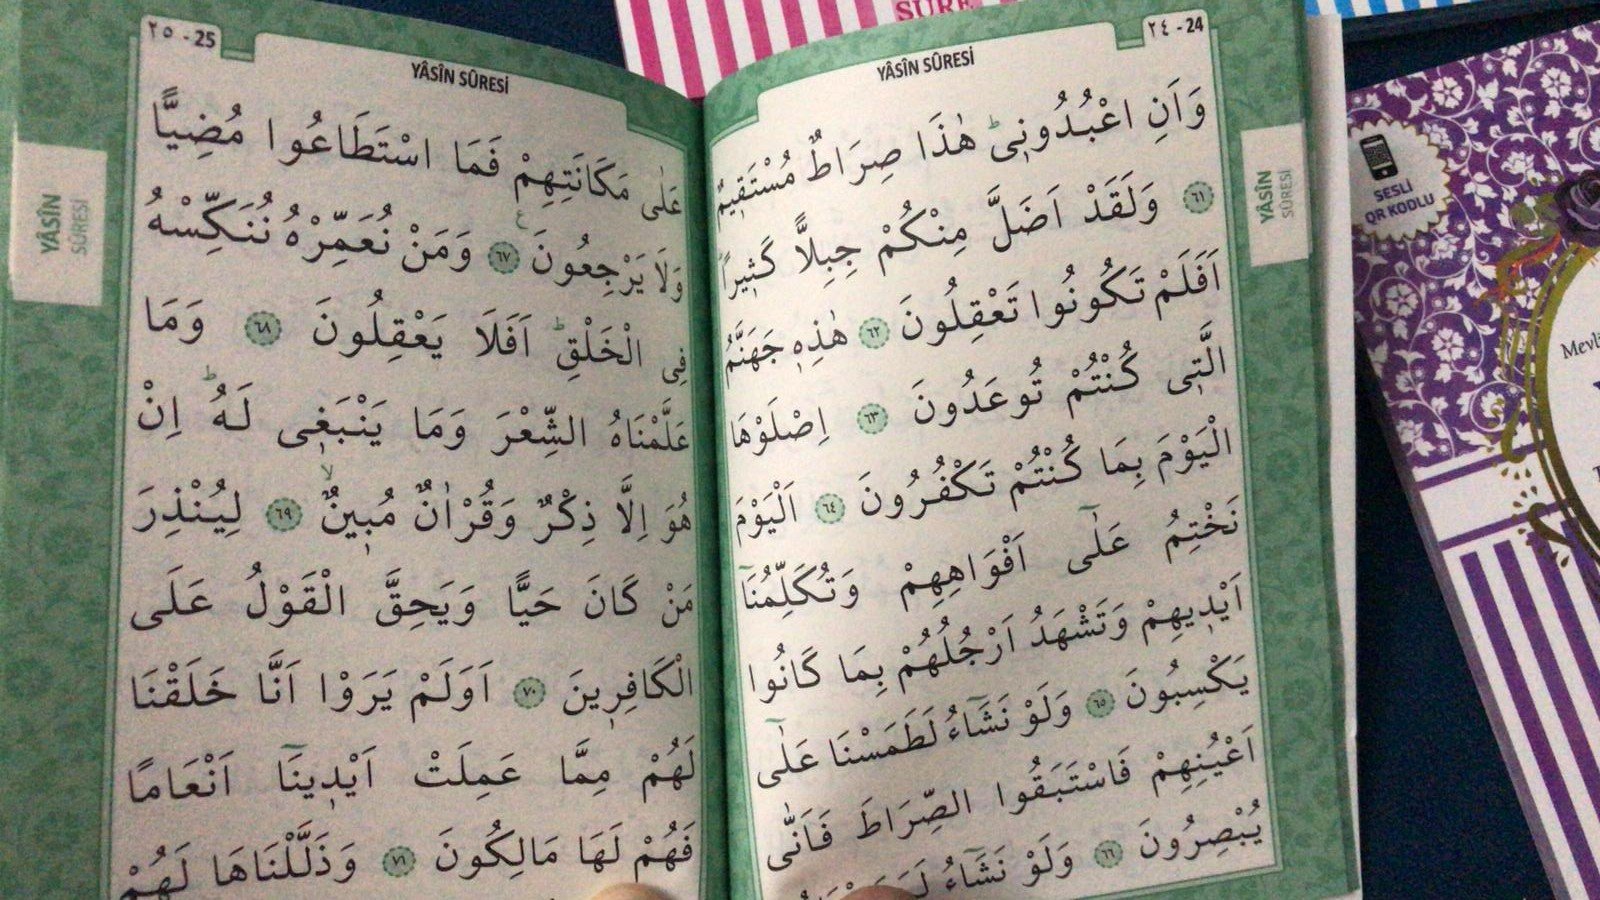 SÛRE
٢٤ - 24
YÂSÎN SÛRESİ
وَاَنِ اعْبُدُونٖىۜ هٰذَا صِرَاطٌ مُسْتَقٖيمٌ
﴿٦١﴾ وَلَقَدْ اَضَلَّ مِنْكُمْ جِبِلًّا كَثٖيرًاۜ
اَفَلَمْ تَكُونُوا تَعْقِلُونَ ﴿٦٢﴾ هٰذِهٖ جَهَنَّمُ
الَّتٖى كُنْتُمْ تُوعَدُونَ ﴿٦٣﴾ اِصْلَوْهَا
الْيَوْمَ بِمَا كُنْتُمْ تَكْفُرُونَ ﴿٦٤﴾ اَلْيَوْمَ
نَخْتِمُ عَلٰٓى اَفْوَاهِهِمْ وَتُكَلِّمُنَٓا
اَيْدٖيهِمْ وَتَشْهَدُ اَرْجُلُهُمْ بِمَا كَانُوا
يَكْسِبُونَ ﴿٦٥﴾ وَلَوْ نَشَٓاءُ لَطَمَسْنَا عَلٰٓى
اَعْيُنِهِمْ فَاسْتَبَقُوا الصِّرَاطَ فَاَنّٰى
يُبْصِرُونَ ﴿٦٦﴾ وَلَوْ نَشَٓاءُ
YÂSÎN
SÛRESİ
٢٥ - 25
YÂSÎN SÛRESİ
عَلٰى مَكَانَتِهِمْ فَمَا اسْتَطَاعُوا مُضِيًّا
وَلَا يَرْجِعُونَ ﴿٦٧﴾ وَمَنْ نُعَمِّرْهُ نُنَكِّسْهُ
فِى الْخَلْقِۜ اَفَلَا يَعْقِلُونَ ﴿٦٨﴾ وَمَا
عَلَّمْنَاهُ الشِّعْرَ وَمَا يَنْبَغٖى لَهُۜ اِنْ
هُوَ اِلَّا ذِكْرٌ وَقُرْاٰنٌ مُبٖينٌۙ ﴿٦٩﴾ لِيُنْذِرَ
مَنْ كَانَ حَيًّا وَيَحِقَّ الْقَوْلُ عَلَى
الْكَافِرٖينَ ﴿٧٠﴾ اَوَلَمْ يَرَوْا اَنَّا خَلَقْنَا
لَهُمْ مِمَّا عَمِلَتْ اَيْدٖينَٓا اَنْعَامًا
فَهُمْ لَهَا مَالِكُونَ ﴿٧١﴾ وَذَلَّلْنَاهَا لَهُمْ
YÂSÎN
SÛRESİ
SESLİ
QR KODLU